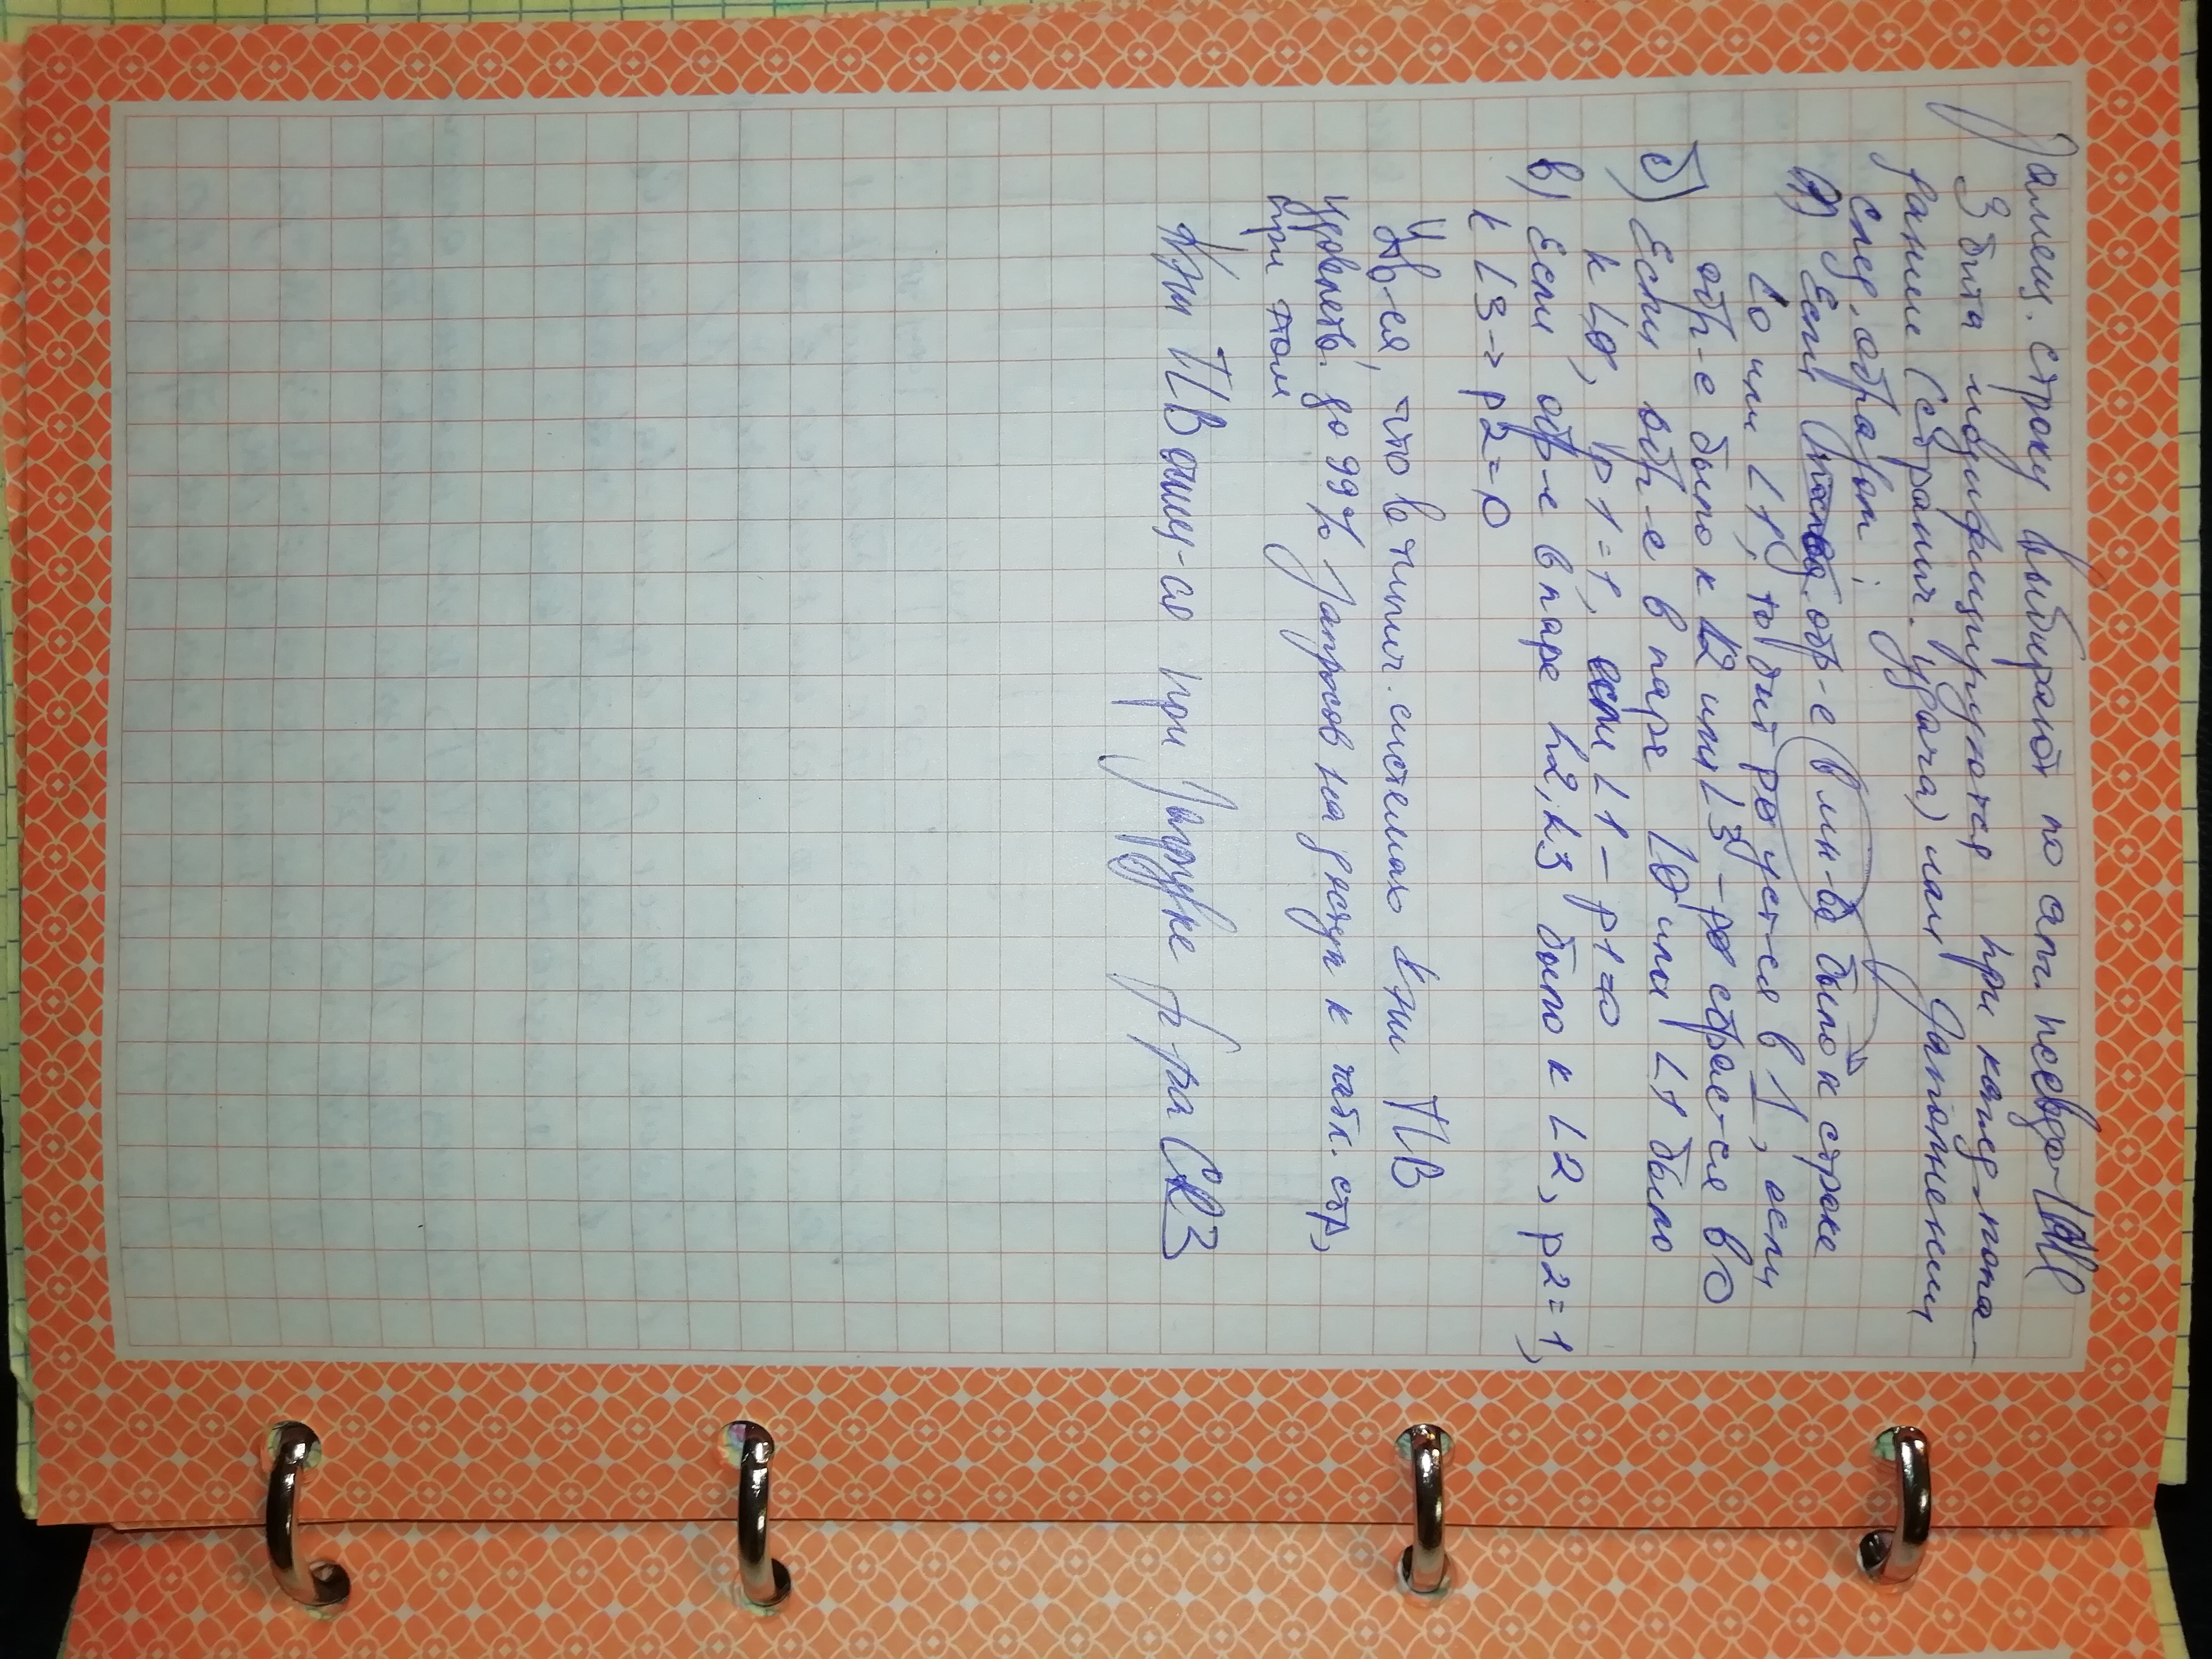 Замещ. строку выбирают по алг. псевдо-LRU
3 бита модифицируются при кажд. попа-
дании (страничн. удача) или заполнении
след. образом:
а) Если обр-е в мн-ве было к строке
L0 или L1, то бит p0 уст-ся в 1, если
обр-е было к L2 или L3 - p0 сбрас-ся в 0
б) Если обр-е в паре L0 или L1 было
к L0, p1=1, если L1 - p1=0
в) Если обр-е в паре L2, L3 было к L2, p2=1,
к L3 -> p2=0
что в типич. системах Кэш ПВ
удовлетв. до 99% запросов на доступ к табл. стр,
при этом
Кэш ПВ очищ-ся при загрузке р-ра CR3